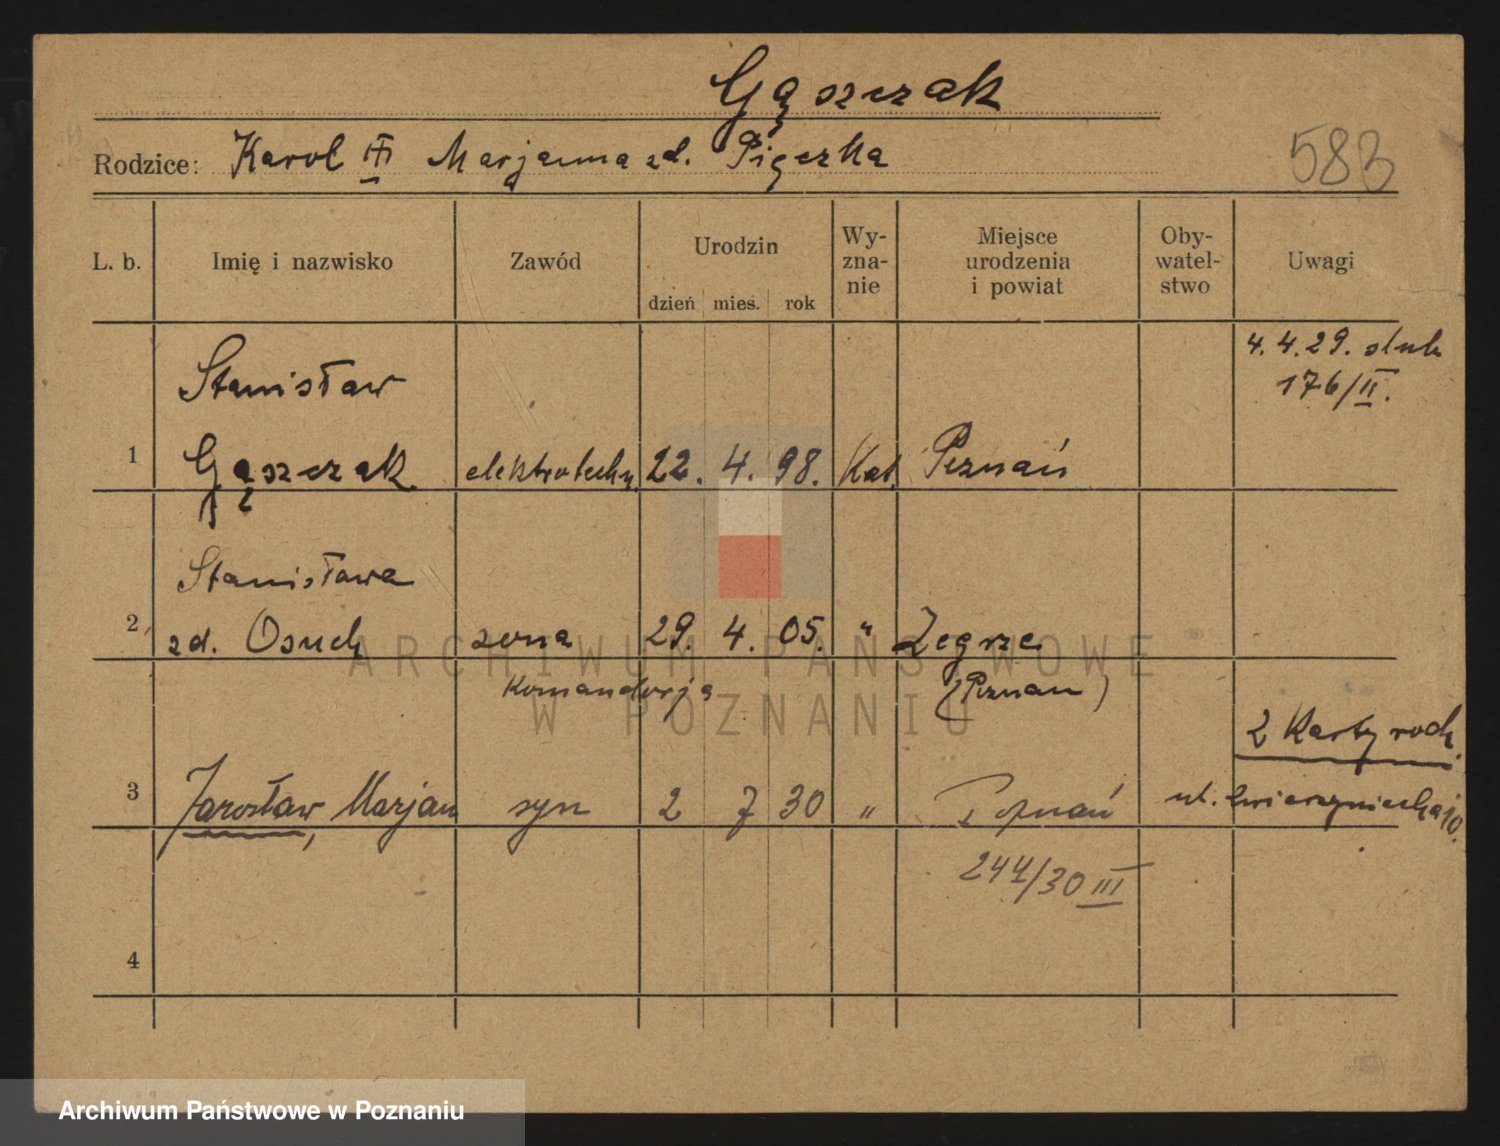 Gąszczak
Rodzice: Karol Marjanna zd. Pięczka
583
L. b. Imię i nazwisko Zawód Urodzin dzień mies. rok Wy-zna-nie Miejsce urodzenia i powiat Oby-watel-stwo Uwagi
4.4.29. slub
176/II.
Stanisław
1 Gąszczak elektrotechn. 22. 4. 98. Kat. Poznań
Stanisława
2 zd. Osuch żona 29. 4. 05. " Zegrze
Komandorja (Poznan)
2 Karty rodz.
3 Jarosław, Marjan syn 2 7 30 " Poznań ul. Zwierzyniecka 10.
244/30 III
4
ARCHIWUM PAŃSTWOWE
W POZNANIU
Archiwum Państwowe w Poznaniu